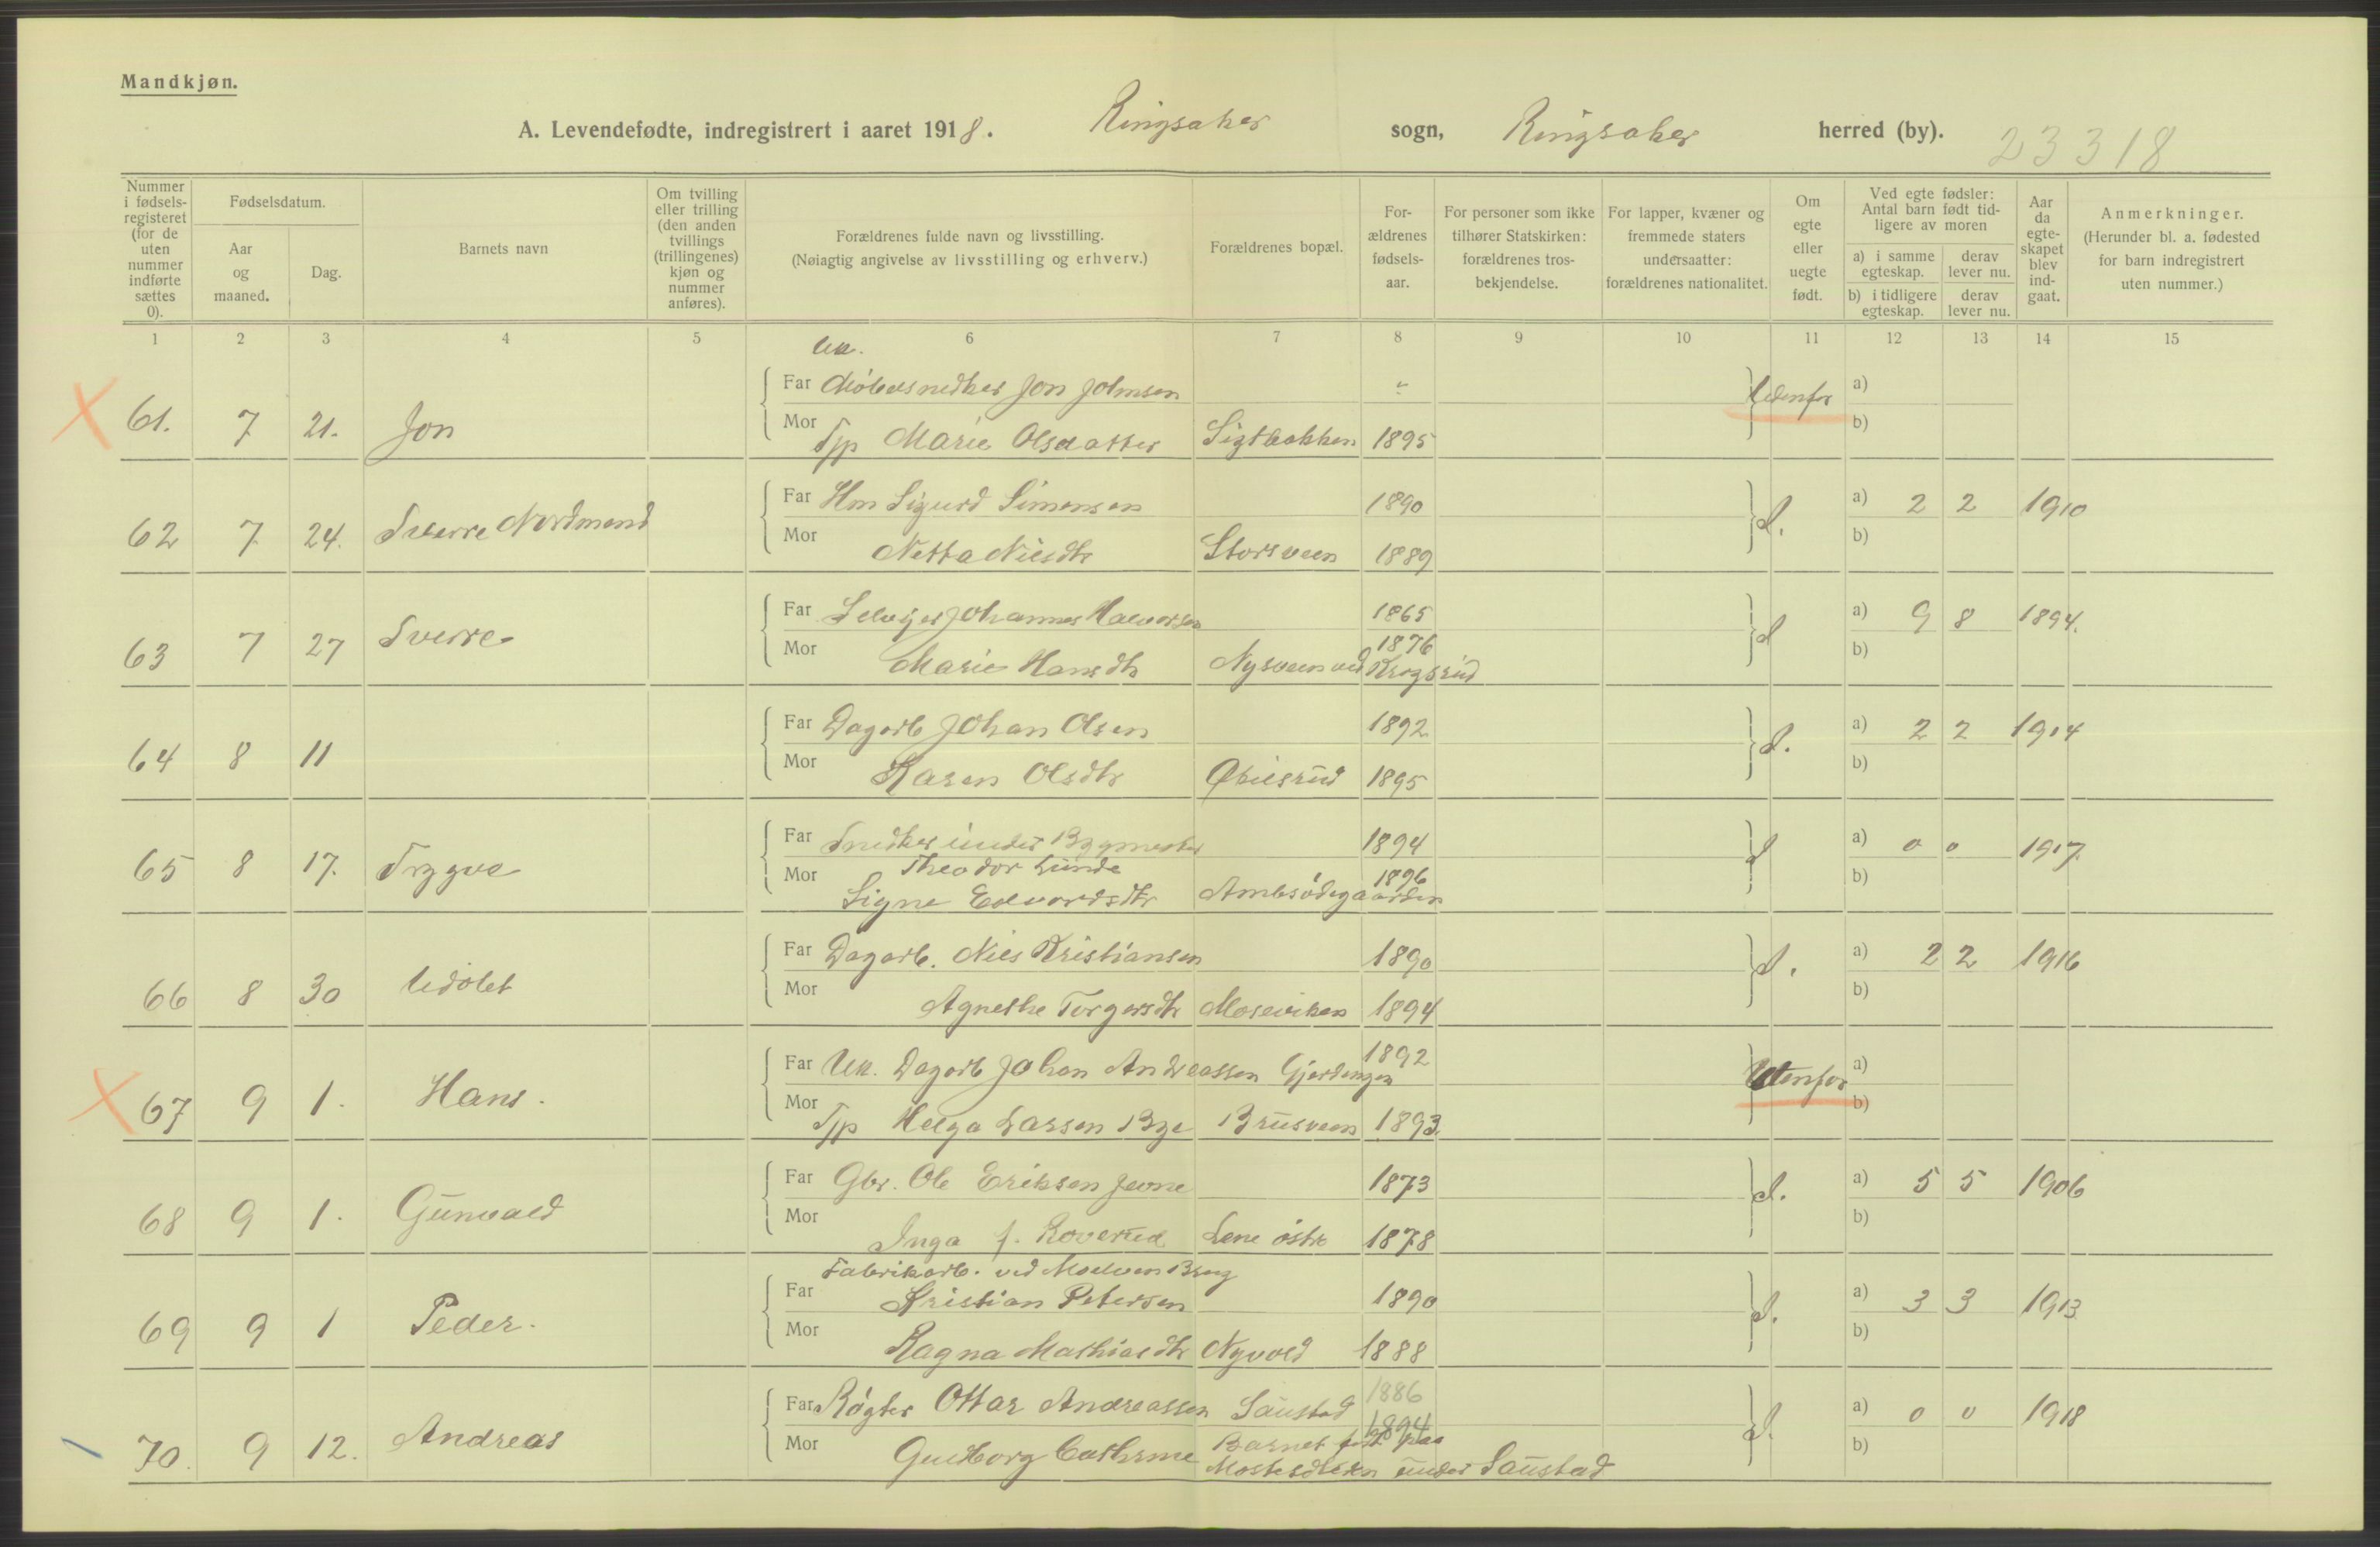 Mandkjøn.
A. Levendefødte, indregistrert i aaret 1918. Ringsaker sogn, Ringsaker herred (by). 23318
Nummer i fødselsregisteret (for de uten nummer indførte sættes 0).
Fødselsdatum.
Aar og maaned.
Dag.
Barnets navn
Om tvilling eller trilling (den anden tvillings (trillingenes) kjøn og nummer anføres).
Forældrenes fulde navn og livsstilling.
(Nøiagtig angivelse av livsstilling og erhverv.)
Forældrenes bopæl.
Forældrenes fødselsaar.
For personer som ikke tilhører Statskirken: forældrenes trosbekjendelse.
For lapper, kvæner og fremmede staters undersaatter: forældrenes nationalitet.
Om egte eller uegte født.
Ved egte fødsler: Antal barn født tidligere av moren
a) i samme egteskap.
derav lever nu.
b) i tidligere egteskap.
derav lever nu.
Aar da egteskapet blev indgaat.
Anmerkninger.
(Herunder bl. a. fødested for barn indregistrert uten nummer.)
1 2 3 4 5 6 7 8 9 10 11 12 13 14 15
Uk.
61. 7 21. Jon Far Møbelsnedker Jon Johnsen - Udenfor a)
Mor Tjp Marie Olsdatter 1895 b)
62 7 24. Sverre Nordmand Far Hm Sigurd Simensen 1890 d. a) 2 2 1910
Mor Netta Nilsdtr Storsveen 1889 b)
63 7 27 Sverre Far Selveier Johannes Halvorsen 1865 d a) 9 8 1894.
Mor Marie Hansdtr Nysveen ved Krogsrud 1876 b)
64 8 11 Far Dagarb Johan Olsen 1892 d. a) 2 2 1914
Mor Karen Olsdtr 1895 b)
65 8 17. Trygve Far Snedker under Bygmester 1894 d a) 0 0 1917.
Theodor Lunde
Mor Signe Edvardsdtr 1896 b)
66 8 30 Udøbt Far Dagarb. Nils Kristiansen 1890 d. a) 2 2 1916
Mor Agnethe Torgersdtr Moseviken 1894 b)
67 9 1. Hans. Far Uk. Dagarb Johan Andreassen Gjerdingen 1892 Utenfor a)
Mor Tjp Helga Larsen Bye Brusveen 1893. b)
68 9 1. Gunvald Far Gbr. Ole Eriksen Jevne 1873 d. a) 5 5 1906
Mor Inga f. Roverud Lene østre 1878 b)
Fabrikarb. ved Moelven Brug
69 9 1 Peder. Far Kristian Petersen 1890 d. a) 3 3 1913
Mor Ragna Mathiasdtr Nyvold 1888 b)
70. 9 12. Andreas Far Røgter Ottar Andreassen Saustad 1886 d. a) 0 0 1918
Mor Gudborg Cathrine 1894 b)
Barnet født paa
under Saustad